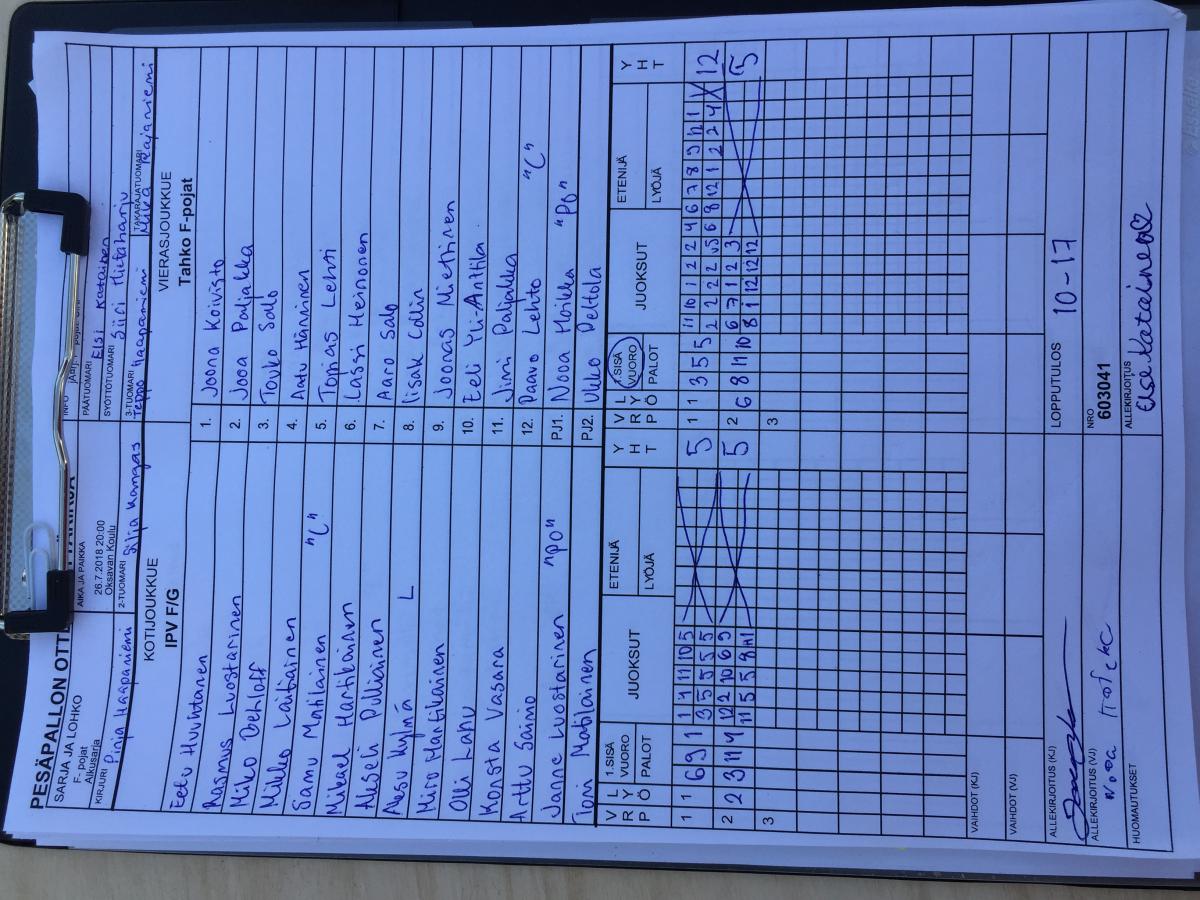 PESÄPALLON OTT
SARJA JA LOHKO
F- pojat
Alkusarja
AIKA JA PAIKKA
26.7.2018 20:00
Oksavan Koulu
INFO
PÄÄTUOMARI
Elsi Katainen
SYÖTTÖTUOMARI
Siiri Hietaharju
KIRJURI Pinja Haapaniemi
2-TUOMARI Silja Kangas
3-TUOMARI Teppo Haapaniemi
TAKARAJATUOMARI Mika Rajaniemi
KOTIJOUKKUE
VIERASJOUKKUE
IPV F/G
Tahko F-pojat
Eetu Huuhtanen 1. Joona Koivisto
Rasmus Luostarinen 2. Jooa Paljakka
Miko Dehloff 3. Touko Salo
Mikko Laitiainen 4. Aatu Hänninen
Samu Matilainen "C" 5. Tomas Lehti
Mikael Hartikainen 6. Lassi Heinonen
Akseli Pulliainen 7. Aaro Salo
Aleksu Kylmä L 8. Iisak Collin
Miro Hartikainen 9. Joonas Miettinen
Olli Lahu 10. Eeli Yli-Anttila
Konsta Vasara 11. Jimi Paljakka
Arttu Sainio 12. Paavo Lehto "C"
Janne Luostarinen "PO" PJ1. Nooa Hoikka "PO"
Toni Matilainen PJ2. Ukko Peltola
V R P L Y Ö 1.SISÄ VUORO PALOT JUOKSUT ETENIJÄ LYÖJÄ Y H T V R P L Y Ö 1.SISÄ VUORO PALOT JUOKSUT ETENIJÄ LYÖJÄ Y H T
1 1 6 9 1 1 1 11 10 5 5 1 1 3 5 5 11 10 1 2 2 4 6 7 8 9 11 1 X 12
3 5 5 5 5 2 2 2 2 5 6 8 12 1 2 2 4
2 2 3 11 4 12 2 10 6 9 5 2 6 8 11 10 6 7 1 2 3 5
11 5 5 8 8 1 12 12 12
3 3
VAIHDOT (KJ)
VAIHDOT (VJ)
ALLEKIRJOITUS (KJ)
LOPPUTULOS 10-17
ALLEKIRJOITUS (VJ)
Nooa Hoikka
NRO
603041
HUOMAUTUKSET
ALLEKIRJOITUS
Elsi Katainen